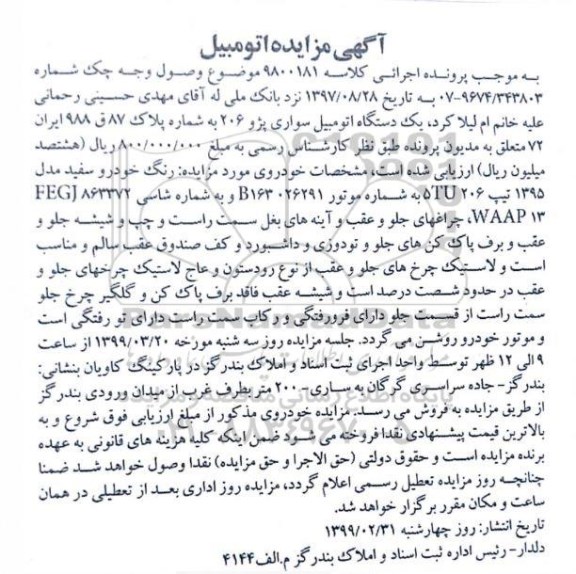 آگهی مزایده اتومبیل
به موجب پرونده اجرائی کلاسه ۹۸۰۰۱۸۱ موضوع وصول وجه چک شماره
۰۷-۹۶۷۴/۳۴۳۸۰۳ به تاریخ ۱۳۹۷/۰۸/۲۸ نزد بانک ملی له آقای مهدی حسینی رحمانی
علیه خانم ام لیلا کرد، یک دستگاه اتومبیل سواری پژو ۲۰۶ به شماره پلاک ۸۷ق ۹۸۸ ایران
۷۲ متعلق به مدیون پرونده طبق نظر کارشناس رسمی به مبلغ ۸۰۰/۰۰۰/۰۰۰ ریال (هشتصد
میلیون ریال) ارزیابی شده است، مشخصات خودروی مورد مزایده: رنگ خودرو سفید مدل
۱۳۹۵ تیپ ۲۰۶ ۵TU به شماره موتور B۱۶۳۰۰۲۶۲۹۱ و به شماره شاسی FEGJ ۸۶۳۳۷۲
WAAP ۱۳، چراغهای جلو و عقب و آینه های بغل سمت راست و چپ و شیشه جلو و
عقب و برف پاک کن های جلو و تودوزی و داشبورد و کف صندوق عقب سالم و مناسب
است و لاستیک چرخ های جلو و عقب از نوع رودستون و عاج لاستیک چرخهای جلو و
عقب در حدود شصت درصد است و شیشه عقب فاقد برف پاک کن و گلگیر چرخ جلو
سمت راست از قسمت جلو دارای فرورفتگی و رکاب سمت راست دارای تو رفتگی است
و موتور خودرو روشن می گردد. جلسه مزایده روز سه شنبه مورخه ۱۳۹۹/۰۳/۲۰ از ساعت
۹ الی ۱۲ ظهر توسط واحد اجرای ثبت اسناد و املاک بندرگز در پارکینگ کاویان بنشانی:
بندرگز- جاده سراسری گرگان به ساری- ۲۰۰ متر بطرف غرب از میدان ورودی بندرگز
از طریق مزایده به فروش می رسد. مزایده خودروی مذکور از مبلغ ارزیابی فوق شروع و به
بالاترین قیمت پیشنهادی نقدا فروخته می شود ضمن اینکه کلیه هزینه های قانونی به عهده
برنده مزایده است و حقوق دولتی (حق الاجرا و حق مزایده) نقدا وصول خواهد شد ضمنا
چنانچه روز مزایده تعطیل رسمی اعلام گردد، مزایده روز اداری بعد از تعطیلی در همان
ساعت و مکان مقرر برگزار خواهد شد.
تاریخ انتشار: روز چهارشنبه ۱۳۹۹/۰۲/۳۱
دلدار- رئیس اداره ثبت اسناد و املاک بندرگز م.الف۴۱۴۴